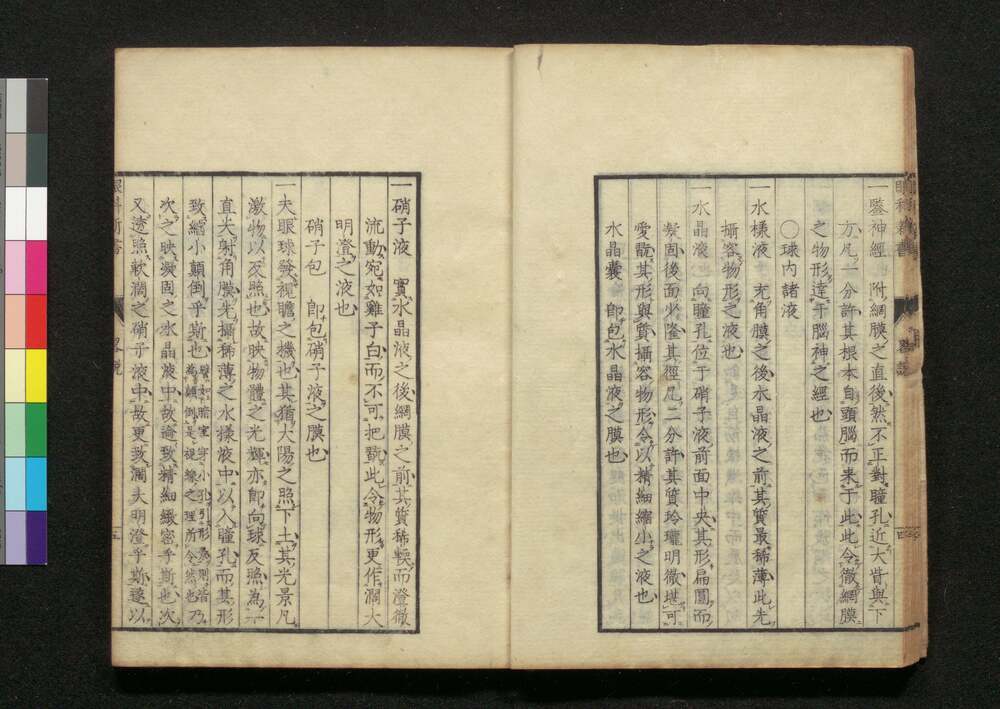 一鑒神經 附綱膜之直後然不正對瞳孔近大眥與下
方凡一分許其根本自頭腦而来于此此令徹綱膜
之物形達于腦神之經也
○球內諸液
一水樣液 充角膜之後水晶液之前其質最稀薄此先
攝容物形之液也
一水晶液 向瞳孔位于硝子液前面中央其形扁圓而
凝固後面少窪其徑凡二分許其質玲瓏明徹堪可
愛翫其形與質攝容物形令以精細縮小之液也
水晶囊 即包水晶液之膜也
眼科新書
四
一硝子液 實水晶液之後綱膜之前其質稀輭而澄徹
流動宛如雞子白而不可把翫此令物形更作濶大
明澄之液也
硝子包 即包硝子液之膜也
一夫眼球發視瞻之機也其猶大陽之照下土其光景凡
激物以交照也故映物體之光輝亦即向球反照為一
直尖射角膜先攝稀薄之水樣液中以入瞳孔而其形
致縮小顛倒乎斯也 譬如暗室穿小孔引形為則皆為顛倒是視線之理所令然也 乃
次之映凝固之水晶液中故逾致精細緻密乎斯也次
又透照軟濶之硝子液中故更致濶大明澄乎斯遂以
五